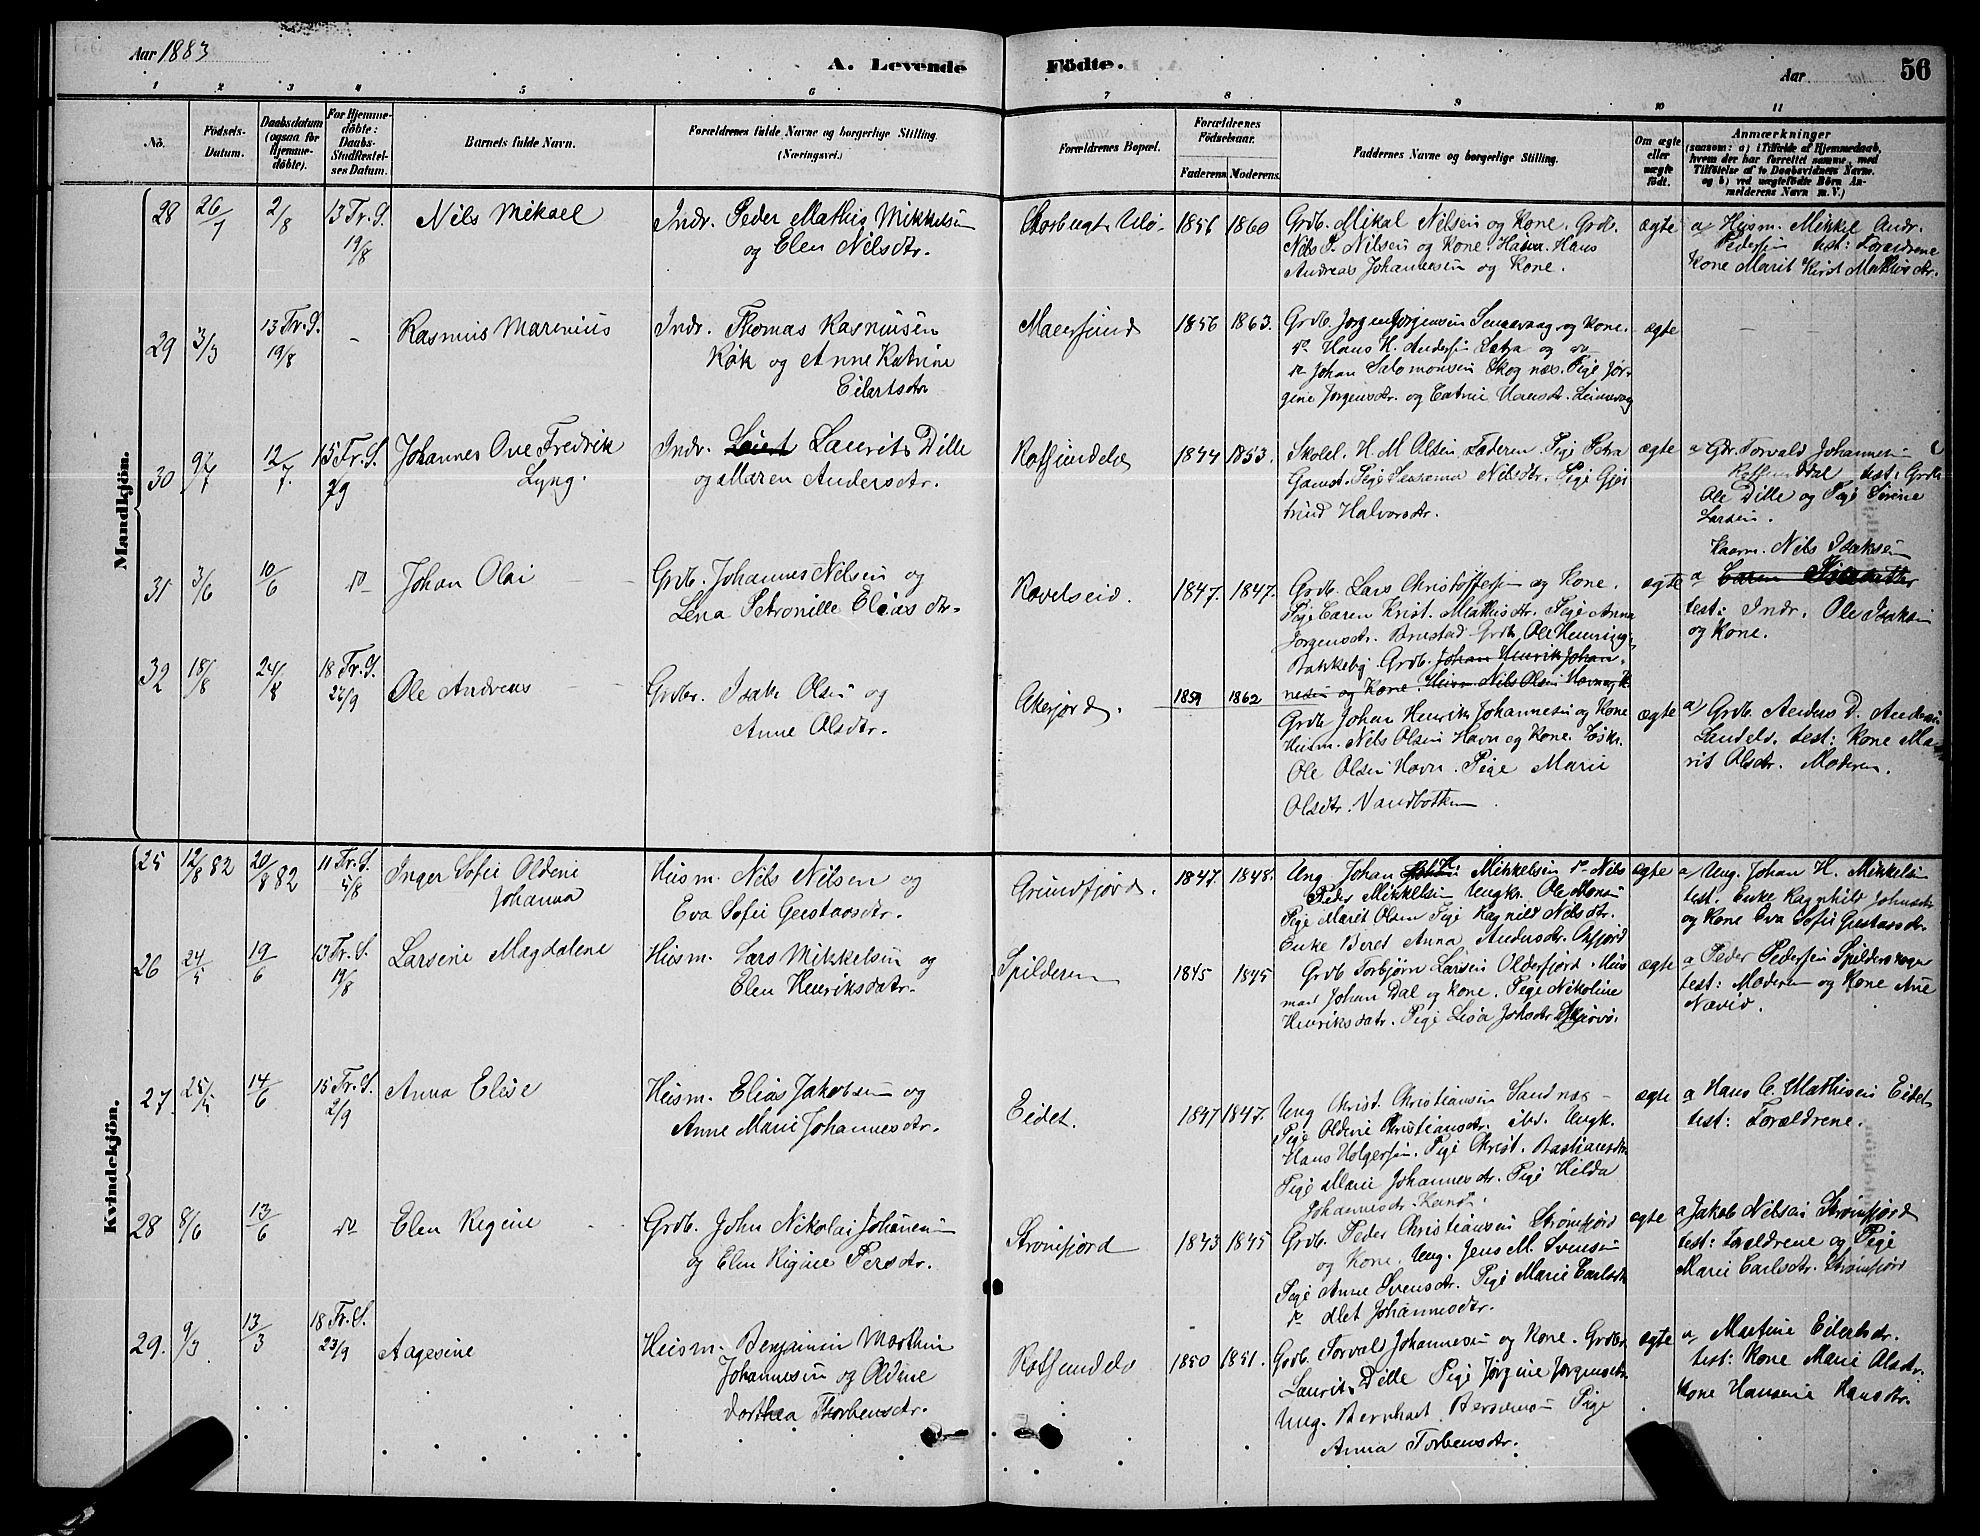 Aar 1883
A. Levende
Födte.
Aar
56
1
2
3
4
5
6
7
8
9
10
11
No.
Födsels-
Datum.
Daabsdatum
(ogsaa for
Hjemme-
döbte).
For Hjemme-
döbte:
Daabs-
Stadfæstel-
ses Datum.
Barnets fulde Navn.
Forældrenes fulde Navne og borgerlige Stilling.
(Næringsvei.)
Forældrenes Bopæl.
Forældrenes
Födselsaar.
Faderens.
Moderens.
Faddernes Navne og borgerlige Stilling.
Om ægte
eller
uægte
födt.
Anmærkninger
(saasom: a) i Tilfælde af Hjemmedaab,
hvem der har forrettet samme, med
Tilföielse af to Daabsvidners Navne.
og b) ved uægtefödte Börn An-
melderens Navn m. V.)
Mandkjön.
28
26/7
2/8
13 Tr. S.
19/8
Nils Mikael
Indr. Peder Mathis Mikkelsen
og Elen Nilsdtr.
Storbugt Ulö.
1856
1860
Grdb. Mikal Nilsen og Kone. Grdb.
Nils P. Nilsen og Kone. Hans
Andreas Johannesen og Kone.
ægte
a Husm. Mikkel Andr.
Pedersen test: Forældrene
Kone Marit Kirst. Mathisdtr.
29
3/3
13 Tr. S.
19/8
-
Rasmus Marenius
Indr. Thomas Rasmusen
Rök og Anne Katrine
Eilertsdtr.
Maursund
1856
1863.
Grdb. Jorgen Jorgensen og Kone.
do Hans H. Andersen og do
do Johan Salomonsen Skognæs. Pige Jör-
gine Jorgensdtr. og Catrine Hansdtr.
ægte
30
9/7
12/7.
15 Tr. S.
2/9
Johannes Ove Fredrik
Lyng.
Indr. Laurits Dille
og Maren Andersdtr.
Rotsundelv
1844
1853.
Skolel. H. M. Olsen, Faderen. Pige Petra
Gamst. Pige Susanna Nilsdtr. Pige Gjer
trud Halvorsdtr.
ægte
a Gdr. Torvald Johannesen
test: Grdb.
Ole Dille og Pige Sirene
Larsen.
31
3/6
10/6
do
Johan Olai
Grdb. Johannes Nilsen og
Lena Petronille Eliasdtr.
Ravelseid.
1847.
1847.
Grdb. Lars Christoffersen og Kone.
Pige Caren Krist. Mathisdtr. Pige Anna
Jorgensdtr. Bakkeby. Grdb. Johan Henrik Johan-
nesen og Kone. Husm. Nils Olsen Havn og K.
ægte
Husm. Nils Isaksen
a
test: Indr. Ole Isaksen
og Kone.
32
18/8
24/8
18 Tr. S.
23/9
Ole Andreas
Grdbr. Isak Olsen og
Anne Olsdtr.
Akerjord.
1859
1862
Grdb. Johan Henrik Johannesen og Kone
Husm. Nils Olsen Havn og Kone.
Ole Olsen Havn. Pige Marie
Olsdtr. Vandbotten
ægte
a) Grdb. Anders D. Andersen
test: Kone Ma-
rit Olsdtr. Moderen.
Kvindekjön.
25
12/8 82
20/8 82
11 Tr. S.
5/8
Inger Sofie Oldine
Johanna
Husm. Nils Nilsen og
Eva Sofie Gustavsdtr.
Grundfjord.
1847.
1848.
Ung. Johan H. Mikkelsen do Nils
Peder Mikkelsen Ungk. Ole Monsen
Pige Marit Olsen Pige Ragnild Nilsdtr.
Enke Beret Anna Andersdtr. Oxfjord
ægte
a Ung. Johan H. Mikkelsen
test. Enke Ragnhild Johnsdtr
og Kone Eva Sofie Gustavsdtr.
26
24/5
19/6
13 Tr. S.
19/8
Larsine Magdalene
Husm. Lars Mikkelsen og
Elen Henriksdatr.
Spilderen
1845
1845
Grdb Torbjørn Larsen Olderfjord. Hus
man Johan Dal og Kone. Pige Nikoline
Henriksdatr. Pige Lisa Johsdtr Skjærvö.
ægte
a Peder Pedersen Spilderskogen
test: Moderen og Kone Ane
Nævid.
27.
25/5
14/6
15 Tr. S.
2/9
Anna Elise
Husm. Elias Jakobsen og
Anne Marie Johannesdtr.
Eidet.
1847
1847.
Ung Christ. Christiansen Sandnæs -
Pige Oldine Christiansdtr. ibd. Ungk.
Hans Holgersen. Pige Christ. Bastiansdtr
Pige Marie Johannesdtr. Pige Hilda
Johannesdtr.
ægte
a Hans C. Mathisen Eidet
test: Forældrene.
28
8/6
13/6
do
Elen Regine
Grdb. John Nikolai Johansen
og Elen Regine Persdtr.
Strömfjord
1843
1845
Grdb. Peder Christiansen Strömfjord
og Kone. Ung. Jens M. Svensen
Pige Anne Svensdtr. Pige Marie Carlsdtr
do Johannesdtr.
ægte
a Jakob Nilsen Strömfjord
test: Forældrene og Pige
Marie Carlsdtr. Strömfjord
29.
9/3
13/3
18 Tr. S.
23/9
Aagesine
Husm. Benjamin Marthin
Johannesen og Oldine
Dorthea Thorbensdtr.
Rotsundelv
1850
1851.
Grdb. Torvald Johannesen og Kone. Grdbr
Laurits Dille Pige Jørgine Jørgensdtr.
Ung. Bernhart Pige
Anna Torbensdtr.
ægte
a Martine Eilertsdtr.
test: Kone Marie Olsdtr.
Kone Hansine Hansdtr.